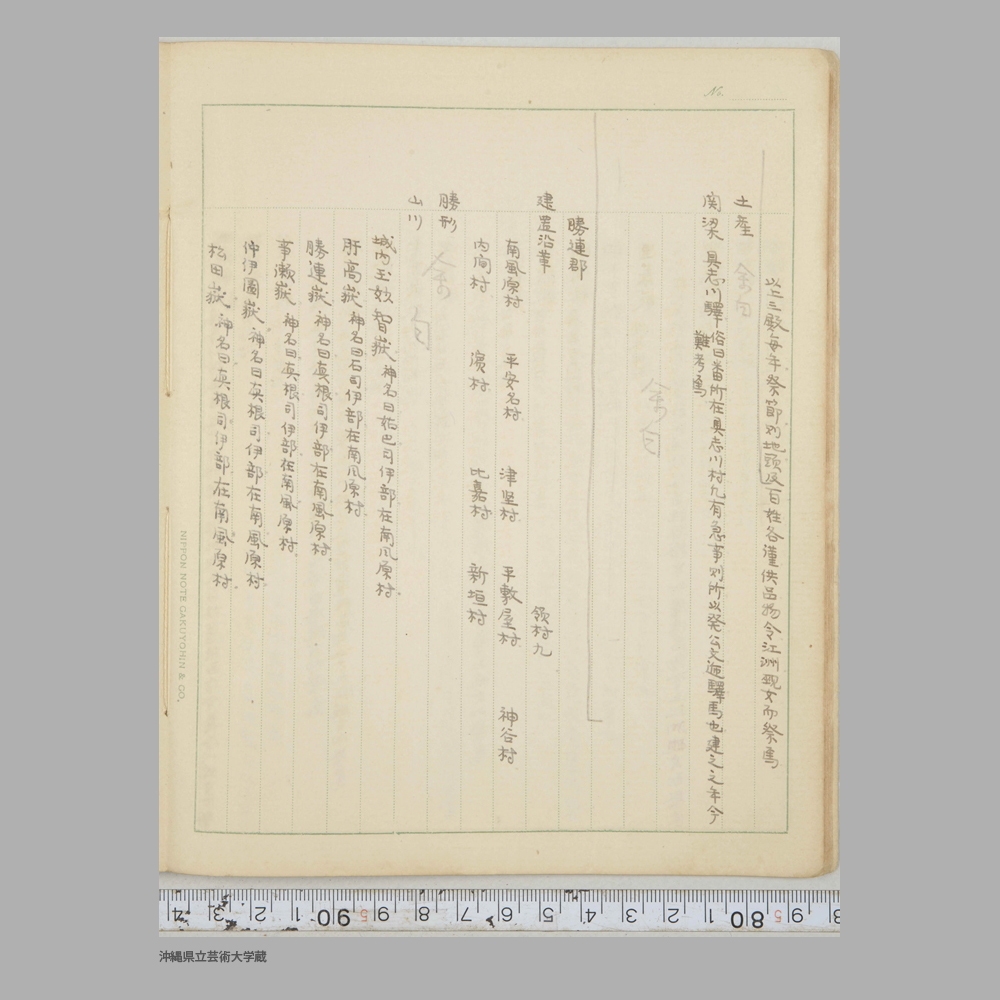 No.
以上三殿毎年祭節則地頭及百姓各謹供品物令江洲覡女而祭焉
土産
余白
関梁 具志川驛 俗曰番所在具志川村凢有急事則所以発公文逓驛馬也建之之年今
難考焉
余白
勝連郡
建置沿革 領村九
南風原村 平安名村 津堅村 平敷屋村 神谷村
内間村 濱村 比嘉村 新垣村
勝形
余白
山川
城内玉妙智嶽 神名曰姑巴司伊部在南風原村
肝高嶽 神名曰石司伊部在南風原村
勝連嶽 神名曰真根司伊部在南風原村
寄瀬嶽 神名曰真根司伊部在南風原村
仲伊圖嶽 神名曰真根司伊部在南風原村
松田嶽 神名曰真根司伊部在南風原村
NIPPON NOTE GAKUYOHIN & CO.
4 3 2 1 90 5 9 8 7 6 5 4 3 2 1 80 5 9 8
沖縄県立芸術大学蔵